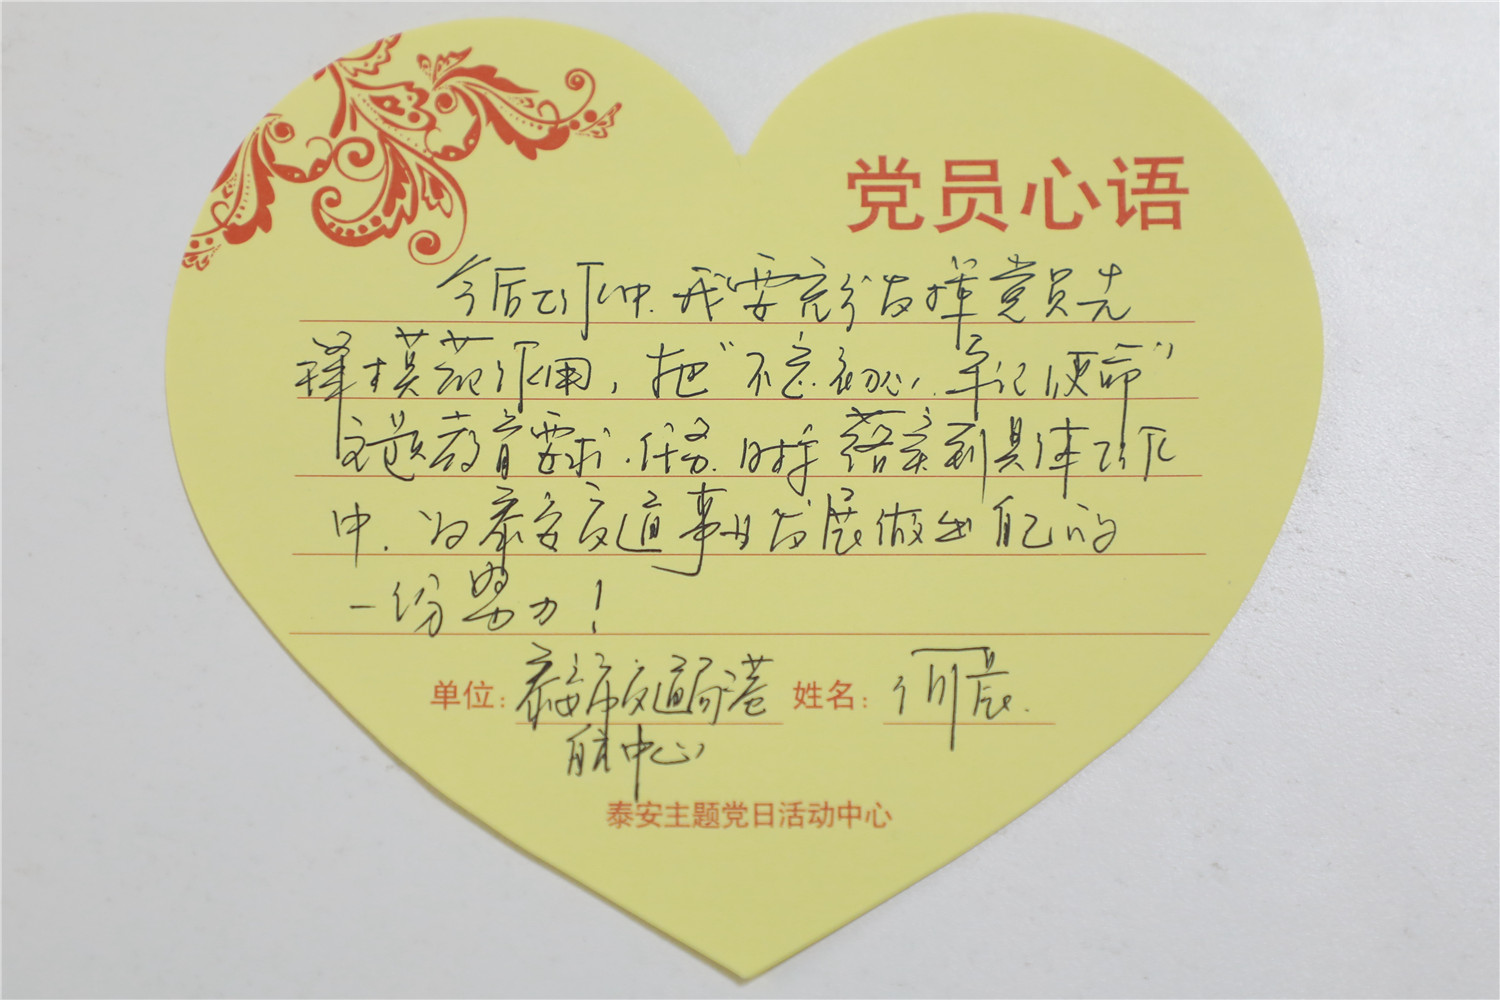 党员心语
今后工作中.我要充分发挥党员先
锋模范作用，把“不忘初心.牢记使命”
主题教育要求.任务.时刻落实到具体工作
中.为泰安交通事业发展做出自己的
一份努力！
单位：泰安市交通局港 姓名：何晨.
航中心
泰安主题党日活动中心